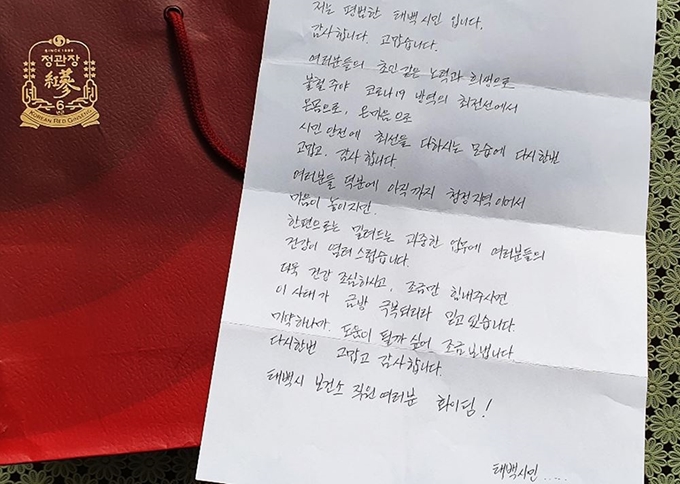 SINCE 1899
정관장
紅蔘
6
KOREAN RED GINSENG
저는 평범한 태백시민 입니다.
감사합니다. 고맙습니다.
여러분들의 초인같은 노력과 희생으로
불철주야 코로나19 방역의 최전선에서
온몸으로, 온마음으로
시민 안전에 최선을 다하시는 모습에 다시한번
고맙고. 감사 합니다
여러분들 덕분에 아직까지 청정지역 이어서
마음이 놓이지만.
한편으로는 밀려드는 과중한 업무에 여러분들의
건강이 염려 스럽습니다.
더욱 건강 조심하시고, 조금만 힘내주시면
이 사태가 금방 극복되리라 믿고있습니다.
미약하나마. 도움이 될까 싶어 조금 보냅니다.
다시한번 고맙고 감사합니다.
태백시 보건소 직원 여러분 화이팅!
태백시민.....